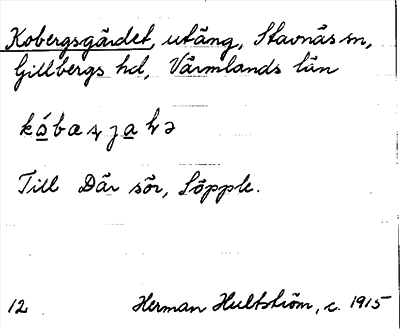 Kobergsgärdet, utäng, Stavnäs sn,
Gillbergs hd, Värmlands län
Till Där sör, Löpple.
12 Herman Hultström, c. 1915